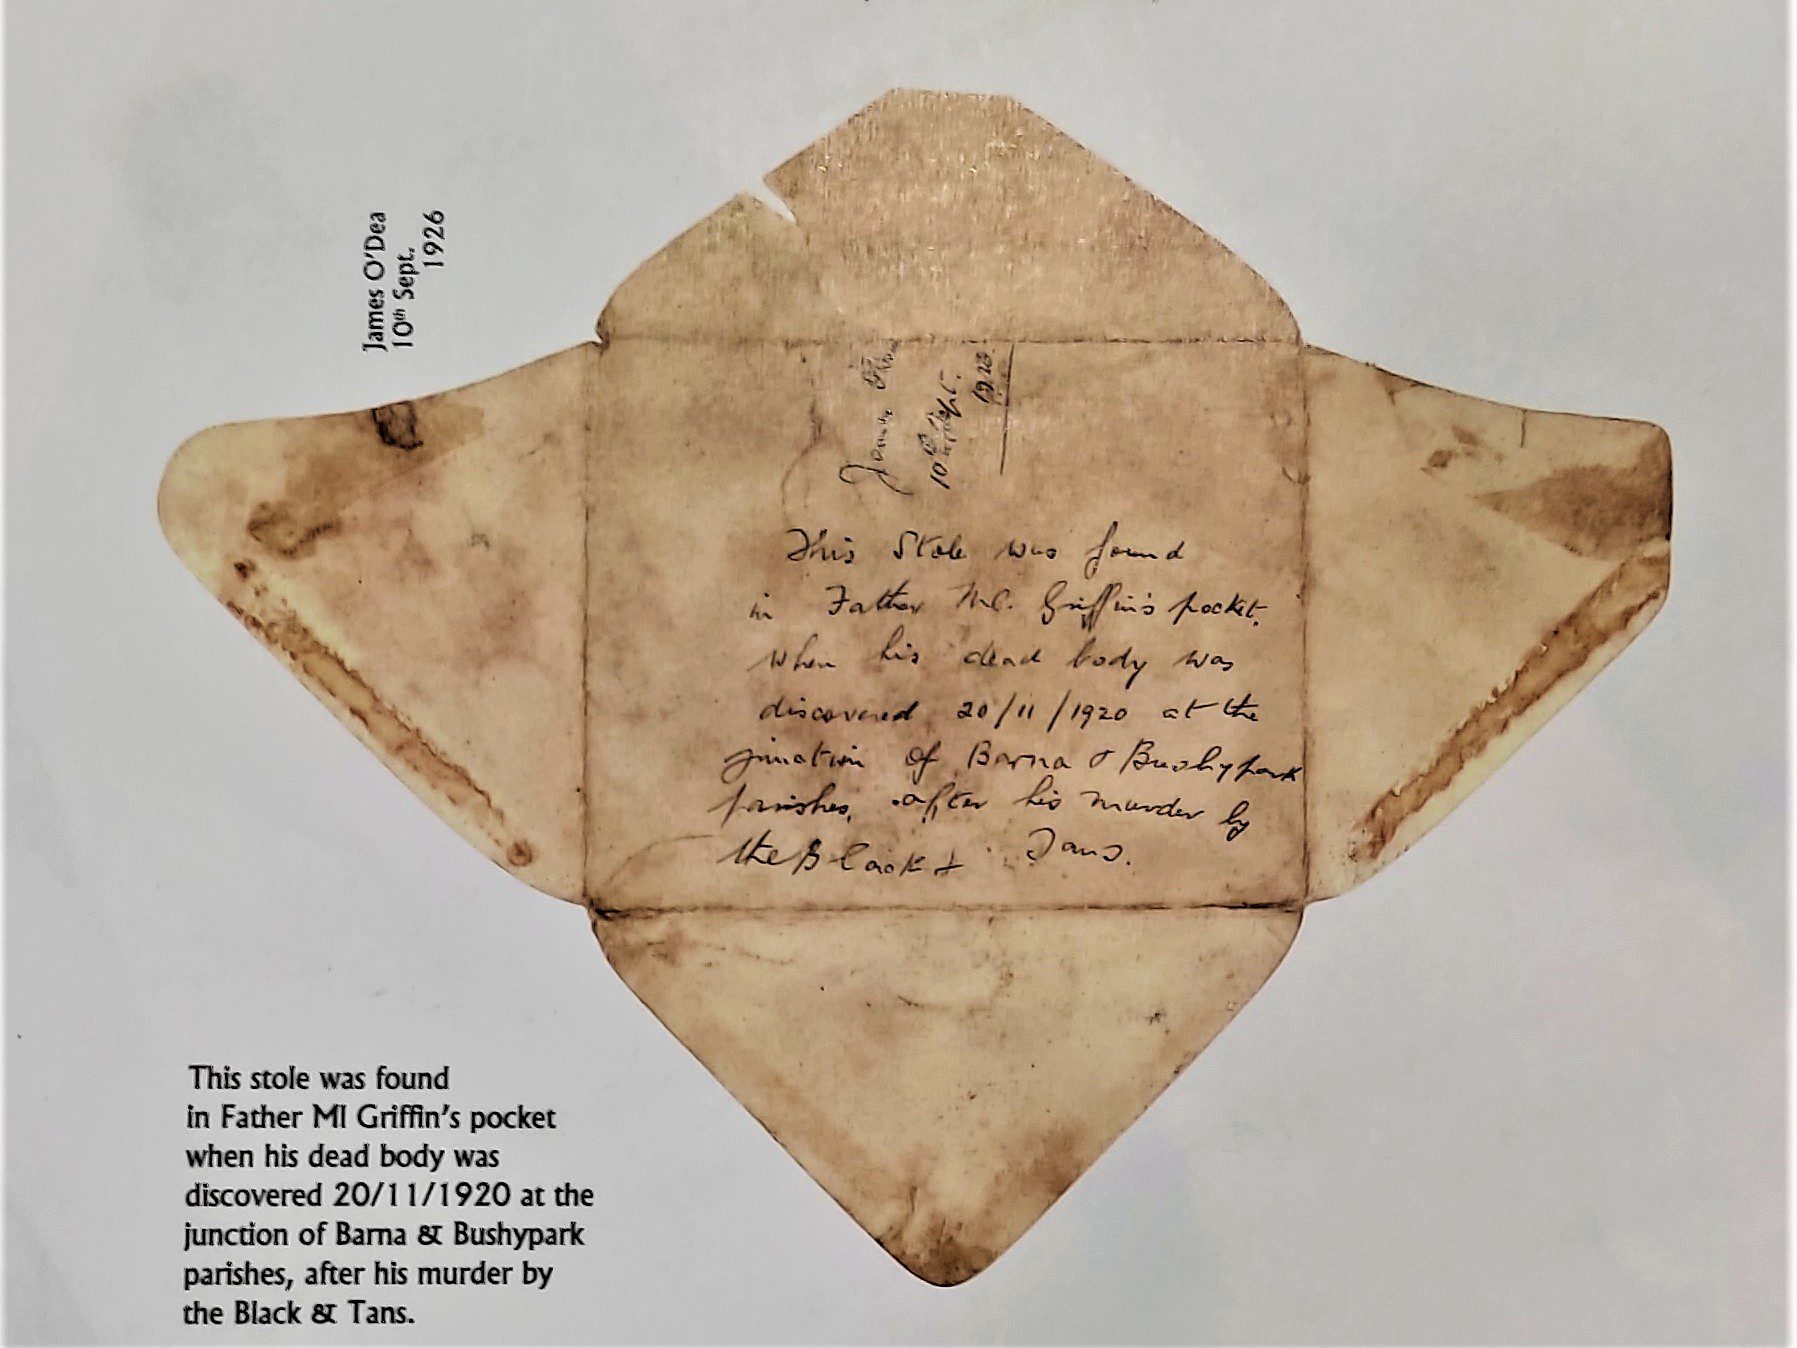 James O'Dea
10th Sept.
1926
James
10th Sept.
This Stole was found
in Father Ml. Griffin's pocket,
when his dead body was
discovered 20/11/1920 at the
junction of Barna & Bushypark
parishes, after his murder by
the Black & Tans.
This stole was found
in Father Ml Griffin's pocket
when his dead body was
discovered 20/11/1920 at the
junction of Barna & Bushypark
parishes, after his murder by
the Black & Tans.